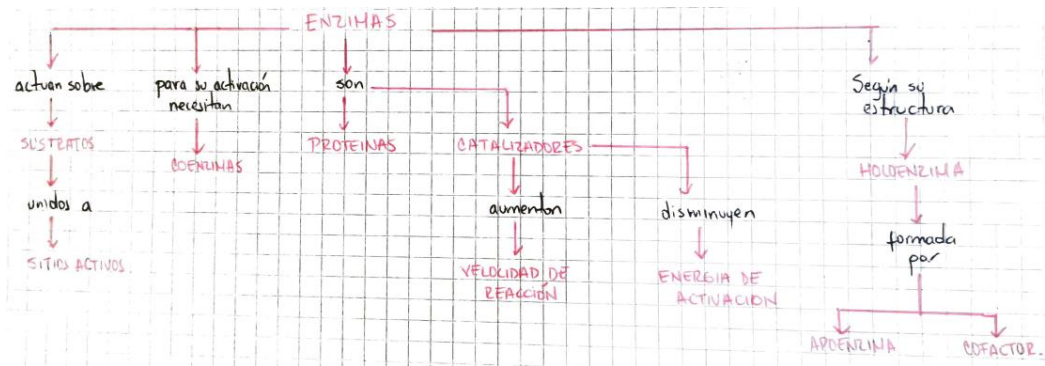 ENZIMAS
actuan sobre
SUSTRATOS
unidos a
SITIOS ACTIVOS.
para su activación
necesitan
COENZIMAS
son
PROTEINAS
CATALIZADORES
aumentan
VELOCIDAD DE
REACCIÓN
disminuyen
ENERGIA DE
ACTIVACION
Según su
estructura
HOLOENZIMA
formada
por
APOENZINA
COFACTOR.